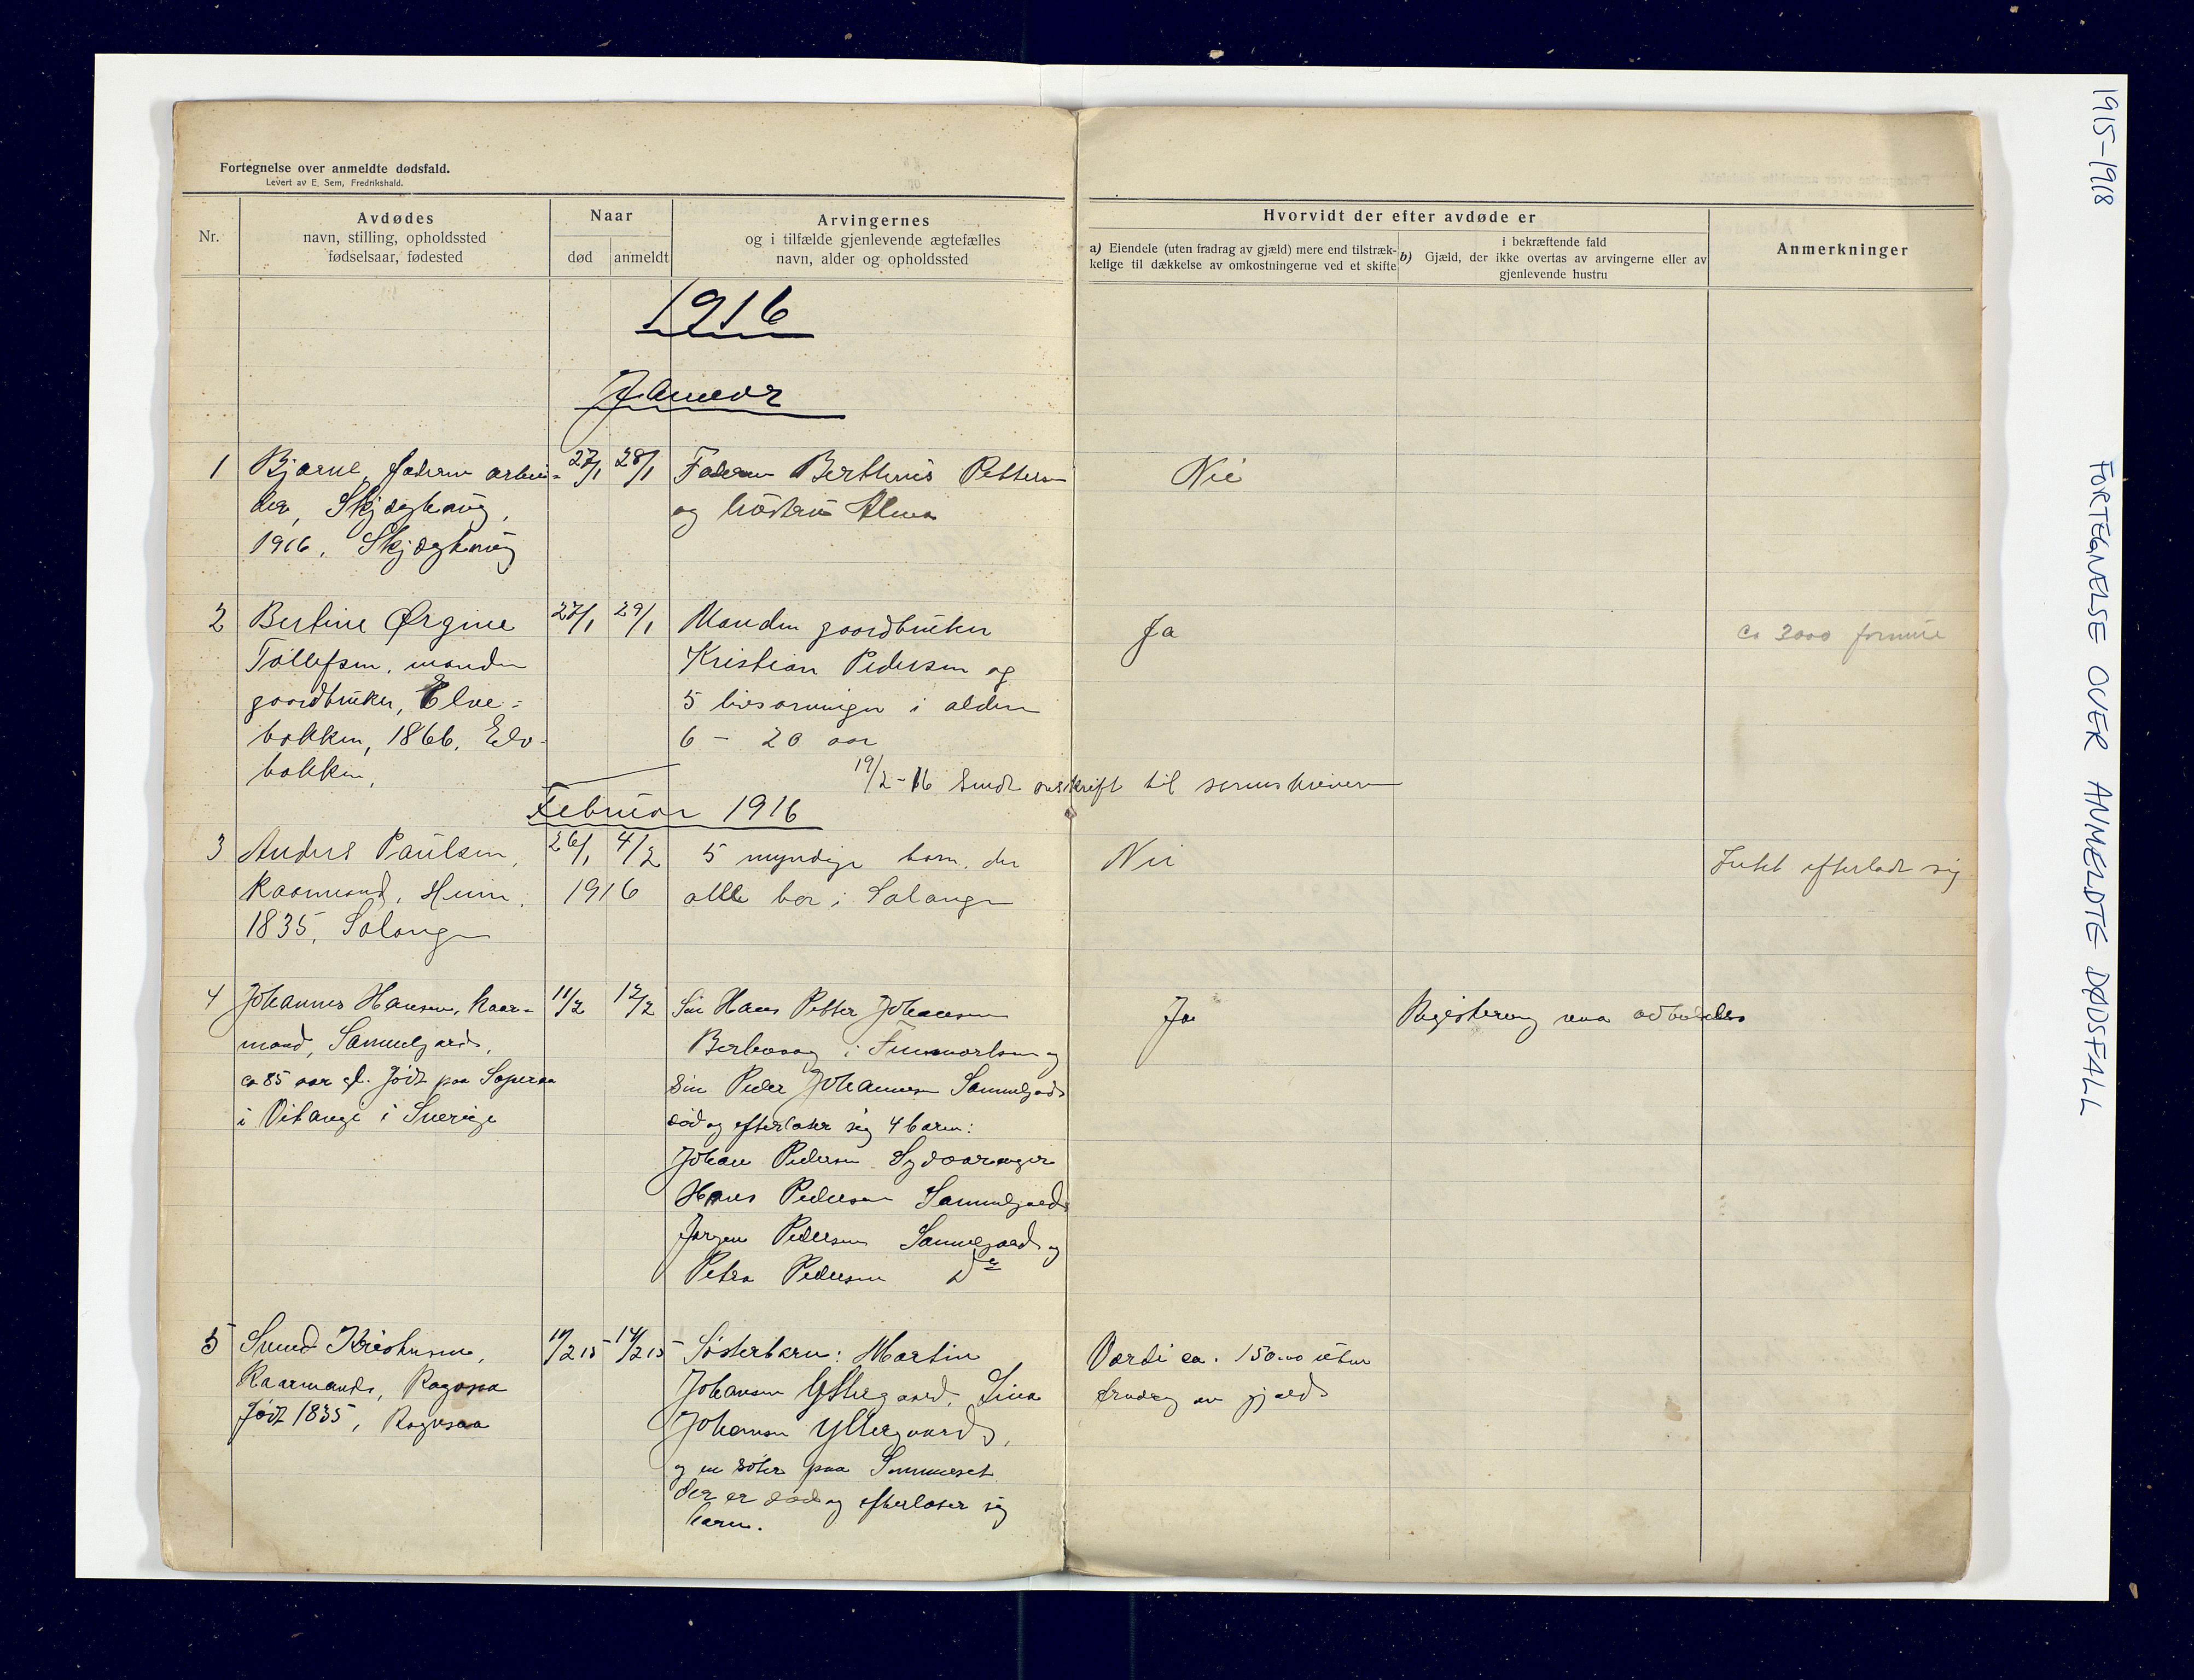 Fortegnelse over anmeldte dødsfald.
Levert av E. Sem, Fredrikshald.
Nr.
Avdødes
navn, stilling, opholdssted
fødselsaar, fødested
Naar
død
anmeldt
Arvingernes
og i tilfælde gjenlevende ægtefælles
navn, alder og opholdssted
Hvorvidt der efter avdøde er
a) Eiendele (uten fradrag av gjæld) mere end tilstræk-
kelige til dækkelse av omkostningerne ved et skifte
i bekræftende fald
b) Gjæld, der ikke overtas av arvingerne eller av
gjenlevende hustru
Anmerkninger
1916
Januar
1 Bjarne, faderen arbei- 27/1 28/1 Faderen Petterson Nei
der, Skjæghaug, og Alma
1916, Skjæghaug
2 Bertine Ørgine 27/1 29/1 Manden gaardbruker Ja ca 3000 formue
Tollefsen, manden Kristian Pedersen og
gaardbruker, Elve= 5 livsarvinger i alderen
bakken, 1866, Elve- 6 - 20 aar
bakken,
19/2-16 Sendt avskrift til sorenskriveren
Februar 1916
3 Anders Paulsen, 26/1 4/2 5 myndige barn, der Nei Intet efterladt sig
kaarmand, 1916 alle bor i Salangen
1835, Salangen
4 Johannes Hansen, kaar= 11/2 12/2 Søn Hans Petter Johansen Ja Registrering maa avholdes
mand, Samuelgaard, Berlevaag i Finmarken og
ca 85 aar gl. født paa Søn Peder Johannesen Samuelgaard
i Vitangi i Sverige død og efterlater sig 4 barn:
Johan Pedersen Sydvaranger
Hans Pedersen Samuelgaard
Jørgen Pedersen Samuelgaard og
Petra Pedersen Do
5 Svend Kristensen, 11/2 15 14/2 15 Søsterbarn: Martin Værdi ca. 150.00 uten
Kaarmand, Johansen Yttergaard, Lina fradrag av gjæld
født 1835, Johansen Yttergaard,
og en paa Sommerset
der er død og efterlater sig
barn.
1915-1918 FORTEGNÆLSE OVER ANMELDTE DØDSFALL